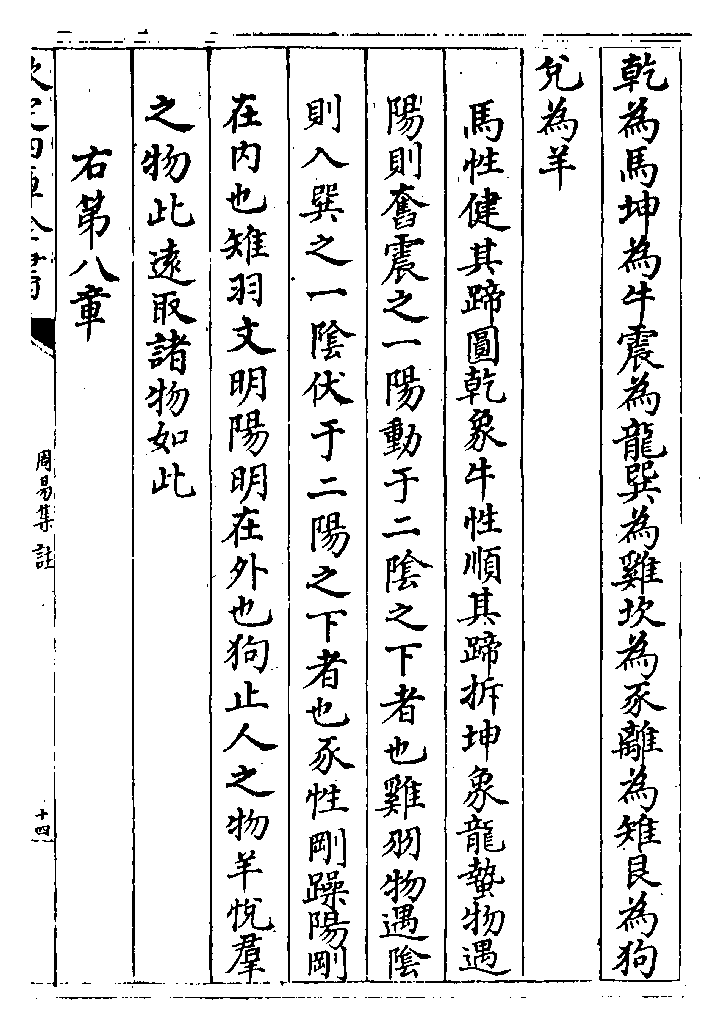 乾為馬坤為牛震為龍巽為雞坎為豕離為雉艮為狗
兌為羊
馬性健其蹄圓乾象牛性順其蹄拆坤象龍蟄物遇
陽則奮震之一陽動于二陰之下者也雞羽物遇陰
則入巽之一陰伏于二陽之下者也豕性剛躁陽剛
在内也雉羽文明陽明在外也狗止人之物羊悅羣
之物此遠取諸物如此
右第八章
欽定四庫全書
周易集註
十四